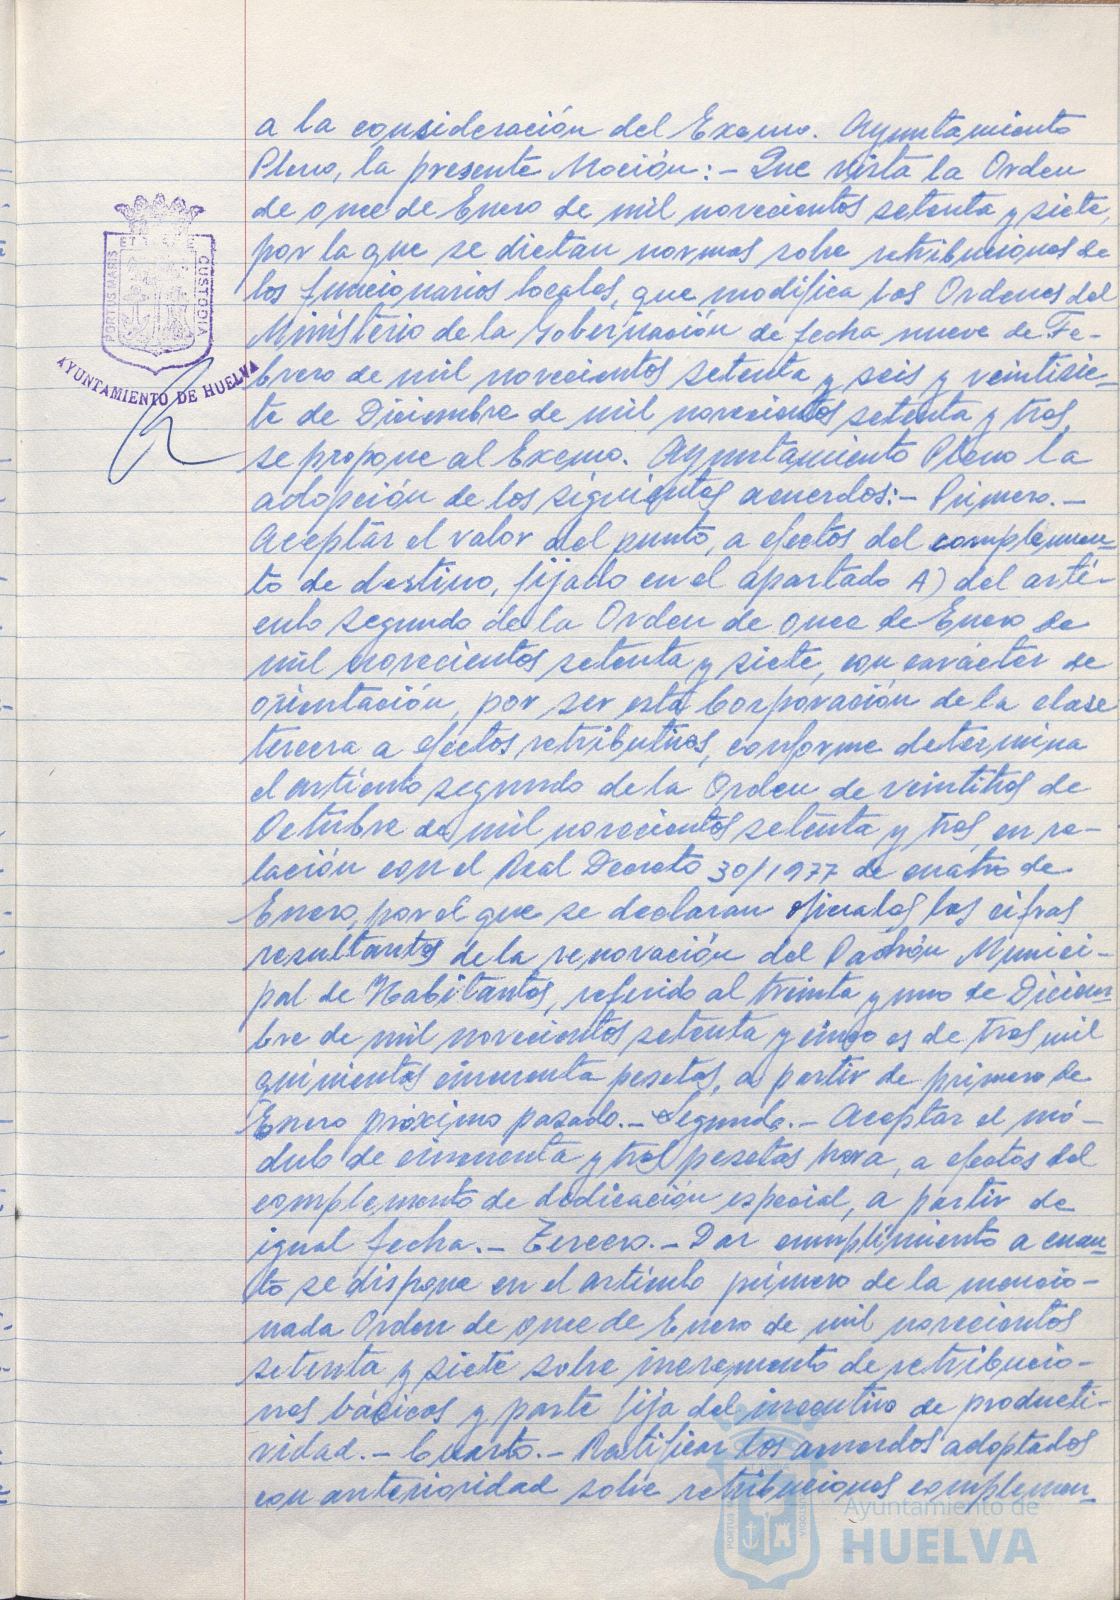 a la consideración del Excmo. Ayuntamiento
Pleno, la presente Moción:- Que vista la Orden
de once de Enero de mil novecientos setenta y siete,
por la que se dictan normas sobre retribuciones de
los funcionarios locales, que modifica las Ordenes del
Ministerio de la Gobernación de fecha nueve de Fe-
brero de mil novecientos setenta y seis y veintisie-
te de Diciembre de mil novecientos setenta y tres,
se propone al Excmo. Ayuntamiento Pleno la
adopción de los siguientes acuerdos:- Primero.-
Aceptar el valor del punto, a efectos del complemen-
to de destino, fijado en el apartado A) del artí-
culo segundo de la Orden de once de Enero de
mil novecientos setenta y siete, con carácter de
orientación, por ser esta Corporación de la clase
tercera a efectos retributivos, conforme determina
el artículo segundo de la Orden de veintitres de
Octubre de mil novecientos setenta y tres, en re-
lación con el Real Decreto 30/1977 de cuatro de
Enero, por el que se declaran oficiales las cifras
resultantes de la renovación del Padrón Munici-
pal de Habitantes, referido al treinta y uno de Diciem-
bre de mil novecientos setenta y cinco es de tres mil
quinientas cincuenta pesetas, a partir de primero de
Enero próximo pasado.- Segundo.- Aceptar el mó-
dulo de cincuenta y tres pesetas hora, a efectos del
complemento de dedicación especial, a partir de
igual fecha.- Tercero.- Dar cumplimiento a cuan-
to se dispone en el artículo primero de la mencio-
nada Orden de once de Enero de mil novecientos
setenta y siete sobre incremento de retribucio-
nes básicas y parte fija del incentivo de producti-
vidad.- Cuarto.- Ratificar los acuerdos adoptados
con anterioridad sobre retribuciones complemen-
PORTUS MARIS ET CUSTODIA
AYUNTAMIENTO DE HUELVA
Ayuntamiento de
HUELVA